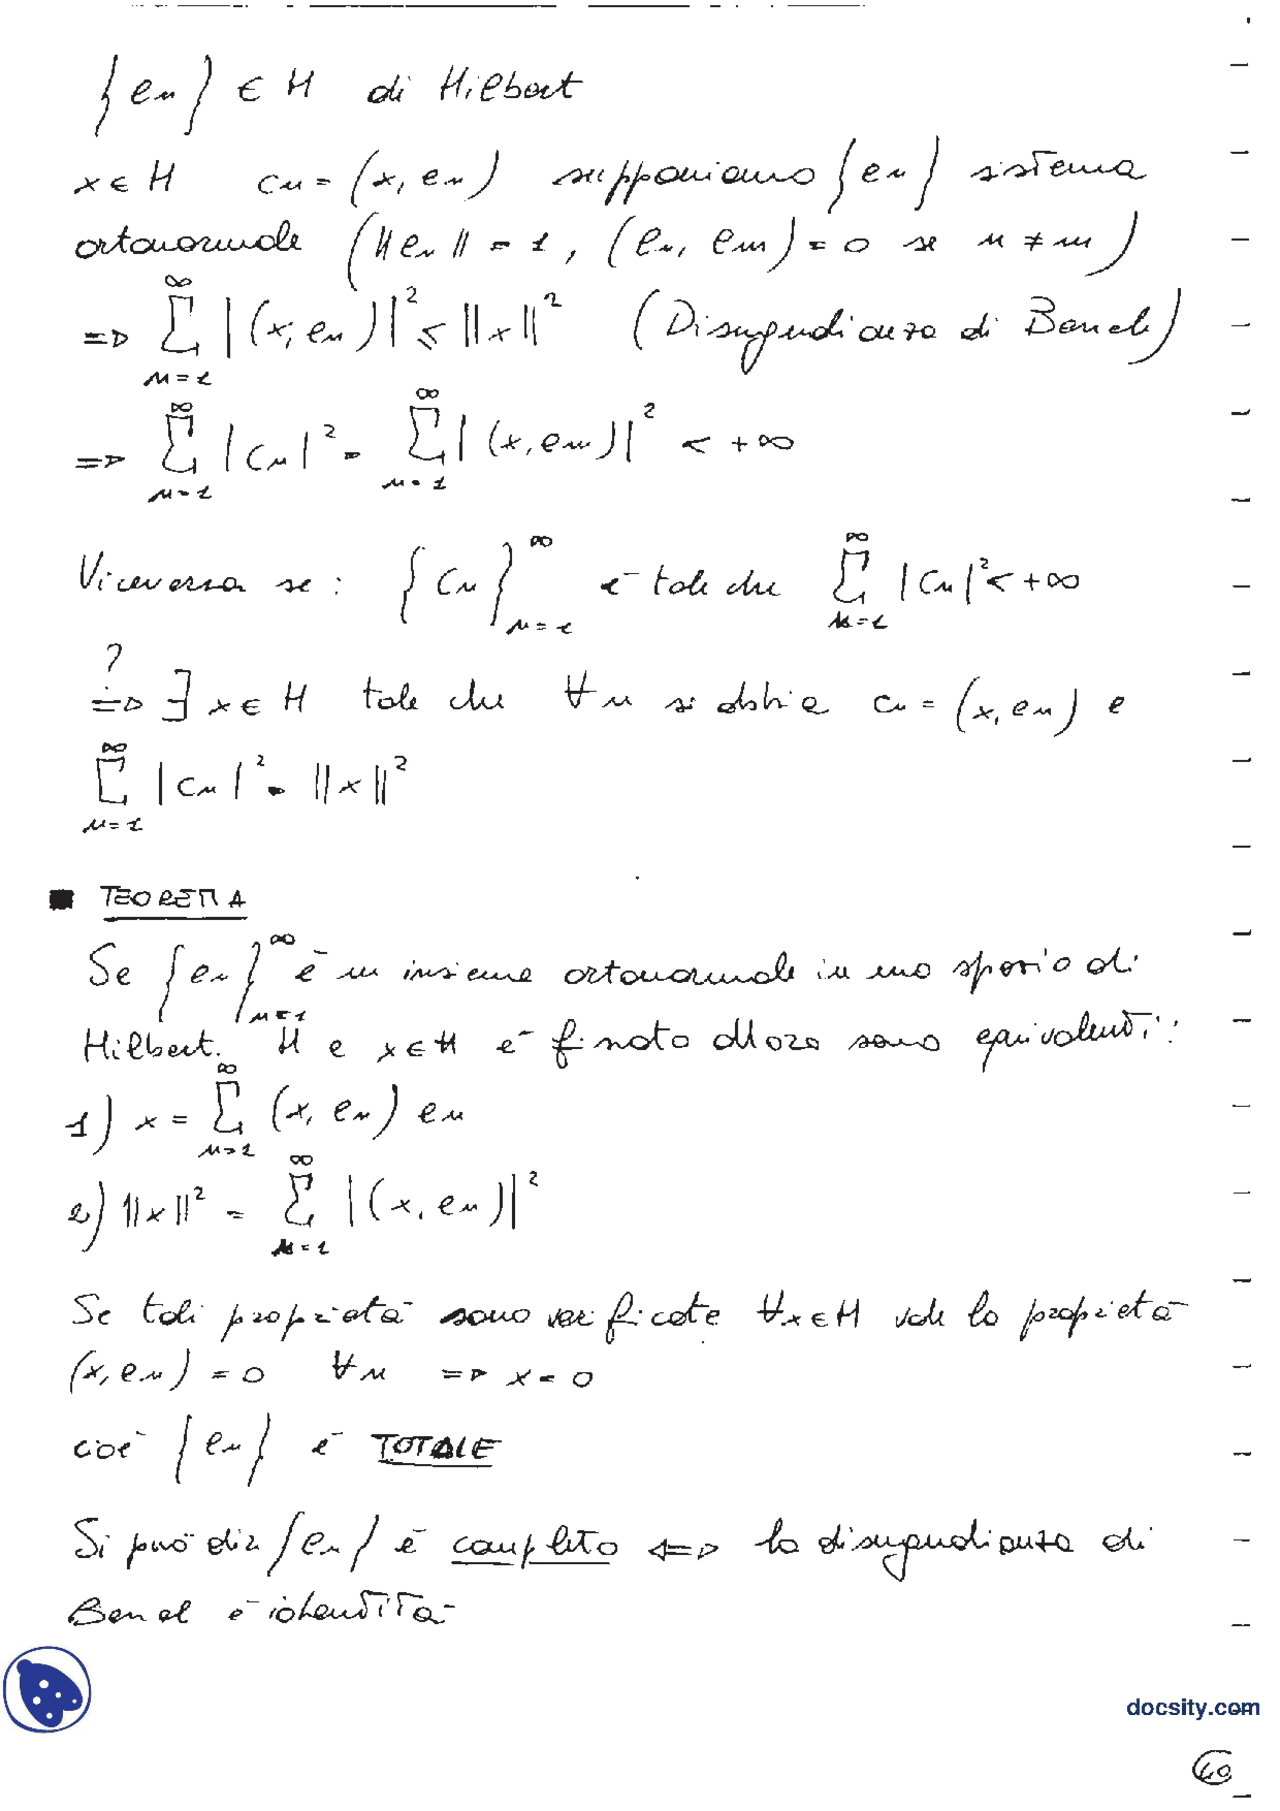 {en} ∈ H di Hilbert
x ∈ H cn = (x, en) supponiamo {en} sistema
ortonormale (||en|| = 1, (en, em) = 0 se n ≠ m)
=> ∞ Σ n=1 |(x, en)|² ≤ ||x||² (Disuguaglianza di Bessel)
=> ∞ Σ n=1 |cn|² = ∞ Σ n=1 |(x, en)|² < +∞
Viceversa se: {cn}∞ n=1 è tale che ∞ Σ n=1 |cn|² < +∞
?
=> ∃ x ∈ H tale che ∀ n si abbia cn = (x, en) e
∞ Σ n=1 |cn|² = ||x||²
■ TEOREMA
Se {en}∞ n=1 è un insieme ortonormale in uno spazio di
Hilbert. H e x ∈ H è fissato allora sono equivalenti:
1) x = ∞ Σ n=1 (x, en) en
2) ||x||² = ∞ Σ n=1 |(x, en)|²
Se tali proprietà sono verificate ∀x ∈ H vale la proprietà
(x, en) = 0 ∀ n => x = 0
cioè {en} è TOTALE
Si può dire {en} è completo <=> la disuguaglianza di
Bessel è identità
docsity.com
40